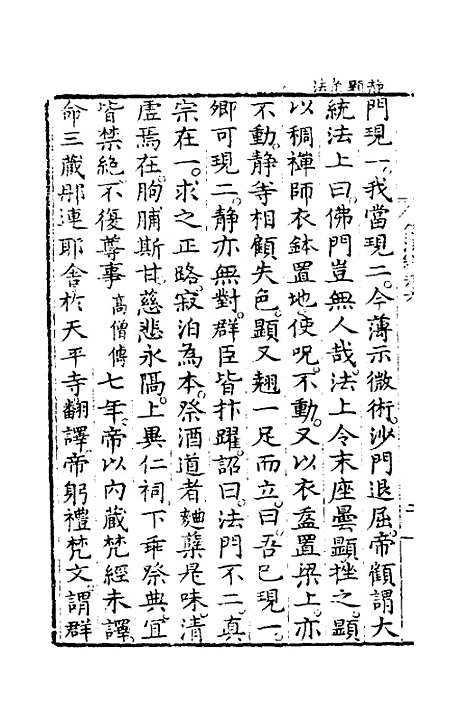 靜顯並法
門現一我當現二今薄示微術沙門退屈帝顧謂大
統法上曰佛門豈無人哉法上令末座曇顯挫之顯
以稠禪師衣鉢置地使呪不動又以衣盋置梁上亦
不動靜等相顧失色顯又翹一足而立曰吾已現一
卿可現二靜亦無對群臣皆抃躍詔曰法門不二真
宗在一求之正路寂泊為本祭酒道者麯蘖是味清
虛焉在朐脯斯甘慈悲永隔上異仁祠下乖祭典宜
皆禁絕不復尊事 高僧傳 七年帝以內藏梵經未譯
命三藏那連耶舍於天平寺翻譯帝躬禮梵文謂群